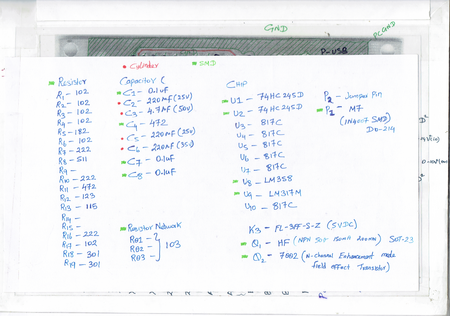 GND
PCGND
P-USB
• Cylinder
SMD
Resistor
R1 - 102
R2 - 102
R3 - 102
R4 - 102
R5 - 182
R6 - 102
R7 - 222
R8 - 511
R9 -
R10 - 222
R11 - 472
R12 - 123
R13 - 115
R14 -
R15 -
R16 - 222
R17 - 102
R18 - 301
R19 - 301
Capacitor (
C1 - 0.1uf
C2 - 220mf (25v)
C3 - 4.7mf (50v)
C4 - 472
C5 - 220mf (25v)
C6 - 220mf (35v)
C7 - 0.1uf
C8 - 0.1uf
Resistor Network
RN1 -
RN2 - 103
RN3 -
CHIP
U1 - 74HC245D
U2 - 74HC245D
U3 - 817C
U4 - 817C
U5 - 817C
U6 - 817C
U7 - 817C
U8 - LM358
U9 - LM317M
U10 - 817C
P2 - Jumper Pin
P2 - M7
(IN4007 SMD)
DO-214
K3 - FL-3FF-S-Z (5VDC)
Q1 - HF (NPN SOT 150mA) SOT-23
Q2 - 7002 (N-channel Enhancement mode
field effect Transistor)